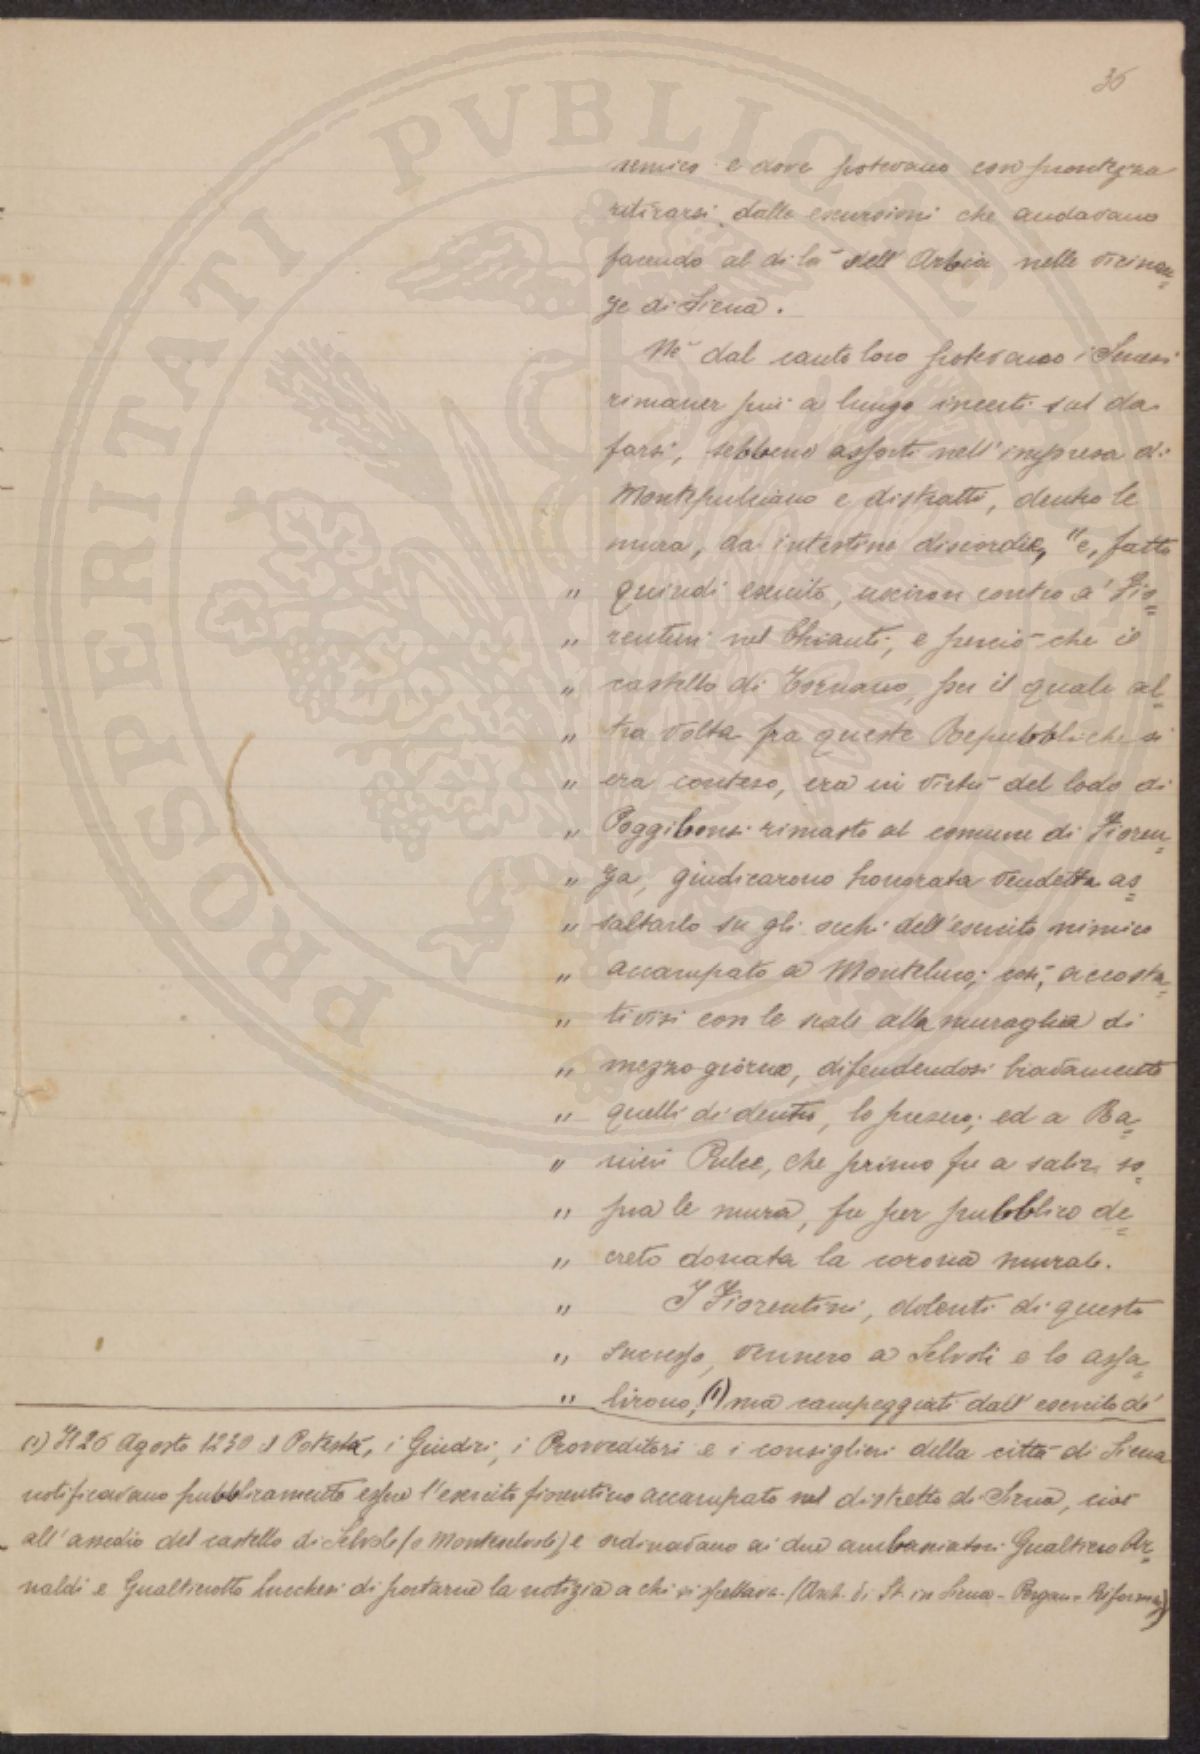 36
nemico e dove potevano con prontezza
ritirarsi dalle escursioni che andavano
facendo al di là dell'Arbia nelle vicinan=
ze di Siena.
Nè dal canto loro potevano i Senesi
rimaner più a lungo incerti sul da
farsi, sebbene assorti nell'impresa di
Montepulciano e distratti, dentro le
mura, da intestine discordie, "e, fatto
" quindi esercito, usciron contro a' Fio=
" rentini nel Chianti, e perciò che il
" castello di Tornano, per il quale al=
" tra volta fra queste Repubbliche si
" era conteso, era in virtù del lodo di
" Poggibonsi rimasto al comune di Fioren=
" za, giudicarono honorata vendetta as=
" saltarlo su gli occhi dell'esercito nimico
" accampato a Monteluco; così, accosta=
" tivisi con le scale alla muraglia di
" mezzo giorno, difendendosi bravamente
" quelli di dentro, lo presero; ed a Ra=
" nieri Pulce, che primo fu a salir so=
" pra le mura, fu per pubblico de=
" creto donata la corona murale.
" I Fiorentini, dolenti di questo
" successo, vennero a Selvoli e lo assa=
" lirono, (1) ma campeggiati dall'esercito de'
(1) Il 26 Agosto 1230 il Potestà, i Giudici, i Provveditori e i consiglieri della città di Siena
notificavano pubblicamente essere l'esercito fiorentino accampato nel distretto di Siena, cioè
all'assedio del castello di Selvole (o Monteselvoli) e ordinavano ai due ambasciatori Gualtiero Ar=
naldi e Gualtierotto Lucchesi di portarne la notizia a chi si spettava. (Arch. di St. in Siena - Pergam= Riformag)
PROSPERITATI PVBLICAE